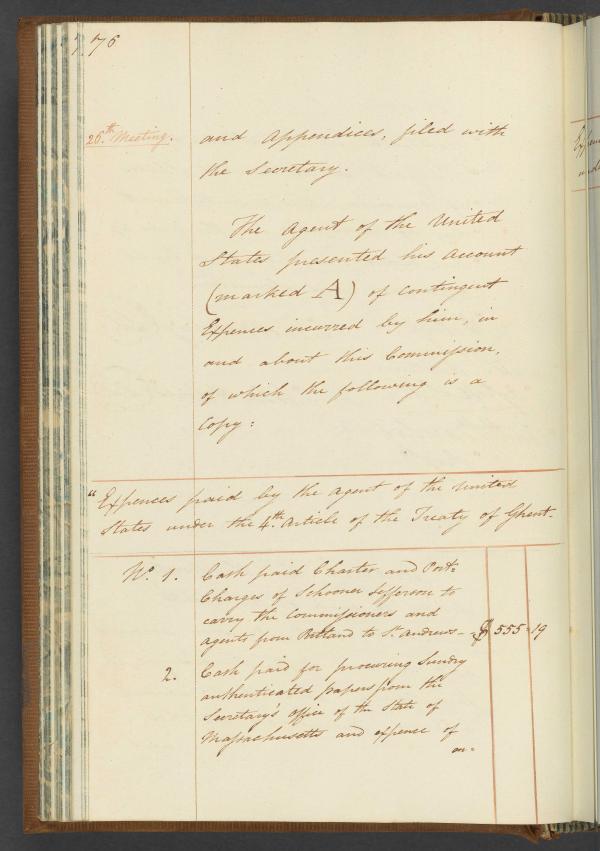 76
26.th Meeting.
and Appendices, filed with
the Secretary.
The Agent of the United
States presented his Account
(marked A) of Contingent
Expences incurred by him, in
and about this Commission,
of which the following is a
Copy:
"Expences paid by the Agent of the United
States under the 4th. Article of the Treaty of Ghent.
No. 1. Cash paid Charter and Port=
Charges of Schooner Jefferson to
carry the Commissioners and
Agents from Portland to St. Andrews - $ 555 = 19
2. Cash paid for procuring Sundry
authenticated papers from the
Secretary's Office of the State of
Massachusetts and expence of